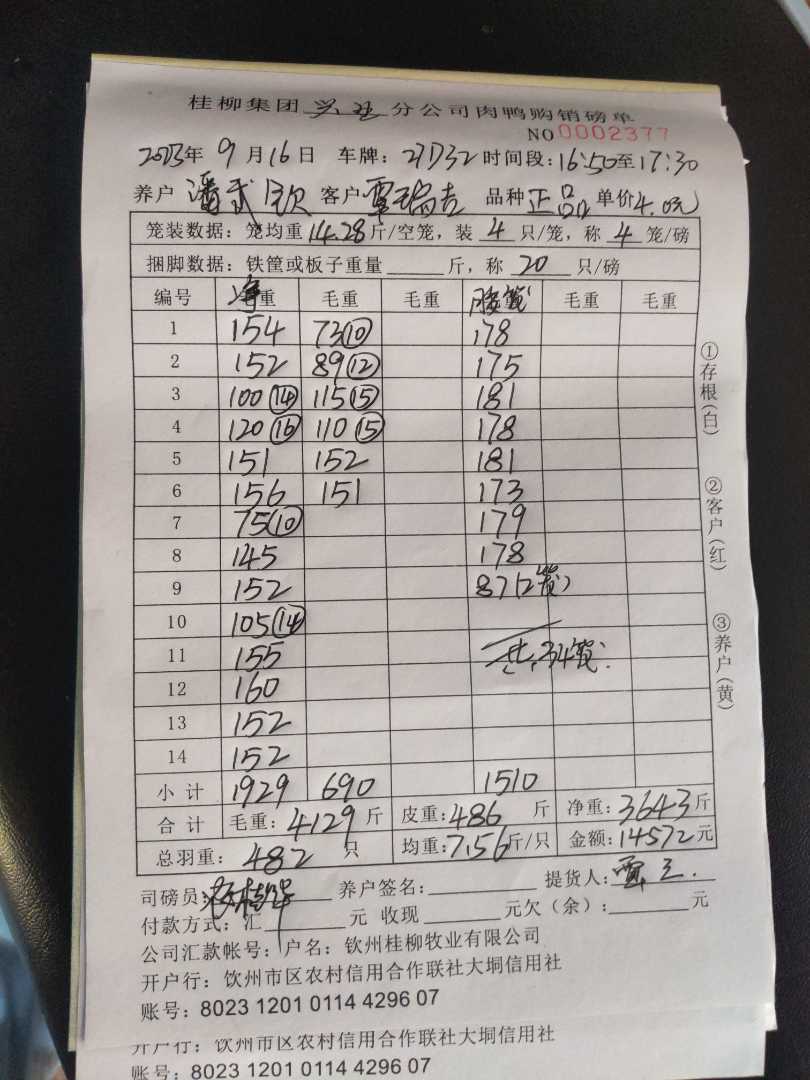 桂柳集团 分公司肉鸭购销磅单
NO 0002377
2023年 9月16日 车牌: 27D32 时间段: 16:50至17:30
养户 潘武钦 客户 覃瑞吉 品种 正品 单价 4.0元
笼装数据: 笼均重 14.28 斤/空笼, 装 4 只/笼, 称 4 笼/磅
捆脚数据: 铁筐或板子重量 斤, 称 20 只/磅
编号 净重 毛重 毛重 毛重 毛重
1 154 73⑩ 178
2 152 89⑫ 175
3 100⑭ 115⑮ 181
4 120⑯ 110⑮ 178
5 151 152 181
6 156 151 173
7 75⑩ 179
8 145 178
9 152 87(2笼)
10 105⑭
11 155 共34笼
12 160
13 152
14 152
小计 1929 690 1510
合计 毛重: 4129 斤 皮重: 486 斤 净重: 3643 斤
总羽重: 482 只 均重: 7.56 斤/只 金额: 14572 元
司磅员: 养户签名: 提货人:
付款方式: 汇 元 收现 元欠(余): 元
公司汇款帐号: 户名: 钦州桂柳牧业有限公司
开户行: 钦州市区农村信用合作联社大垌信用社
账号: 8023 1201 0114 4296 07
开户行: 钦州市区农村信用合作联社大垌信用社
账号: 8023 1201 0114 4296 07
①存根(白)
②客户(红)
③养户(黄)